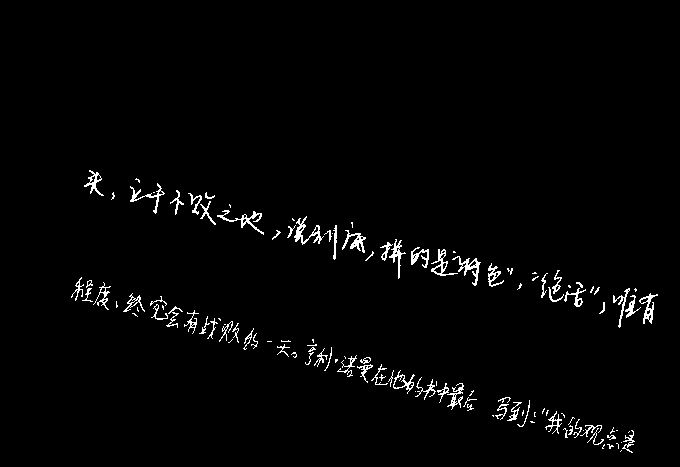 头，立于不败之地，说到底，拼的是“特色”，“绝活”，唯有
程度、终究会有战败的一天。亨利·诺曼在他的书中最后 写到：“我的观点是